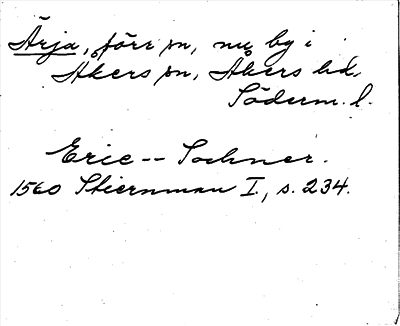 Ärja, förr sn, nu by i
Åkers sn, Åkers hd,
Söderm. l.
Eric -- Sochner.
1560 Stiernman I, s. 234.